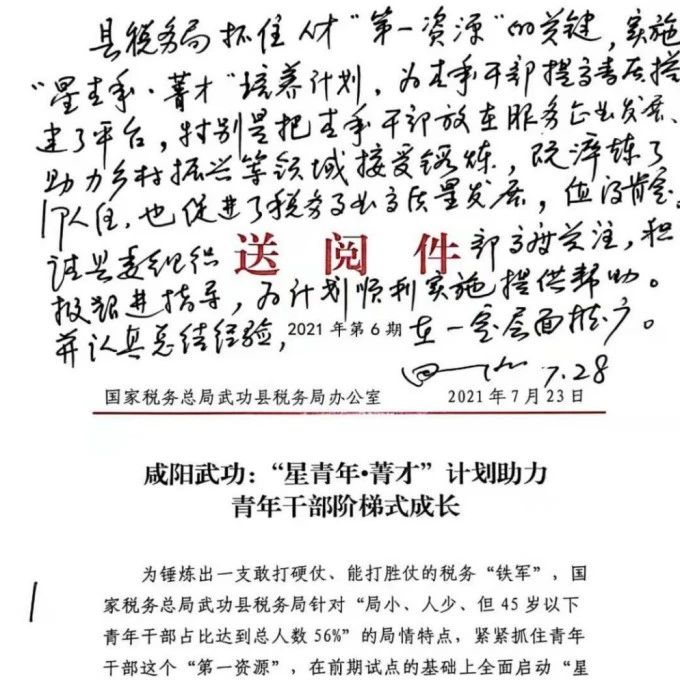 县税务局抓住人才“第一资源”的关键，实施
“星青年·菁才”培养计划，为青年干部提高素质搭
建了平台，特别是把青年干部放在服务企业发展、
助力乡村振兴等领域接受锻炼，既淬炼了
个人，也促进了税务事业高质量发展，值得肯定。
请县委组织部高度关注，积
极跟进指导，为计划顺利实施提供帮助。
并认真总结经验，在一定层面推广。
7.28
送阅件
2021年第6期
国家税务总局武功县税务局办公室 2021年7月23日
咸阳武功：“星青年•菁才”计划助力
青年干部阶梯式成长
为锤炼出一支敢打硬仗、能打胜仗的税务“铁军”，国
家税务总局武功县税务局针对“局小、人少、但45岁以下
青年干部占比达到总人数56%”的局情特点，紧紧抓住青年
干部这个“第一资源”，在前期试点的基础上全面启动“星